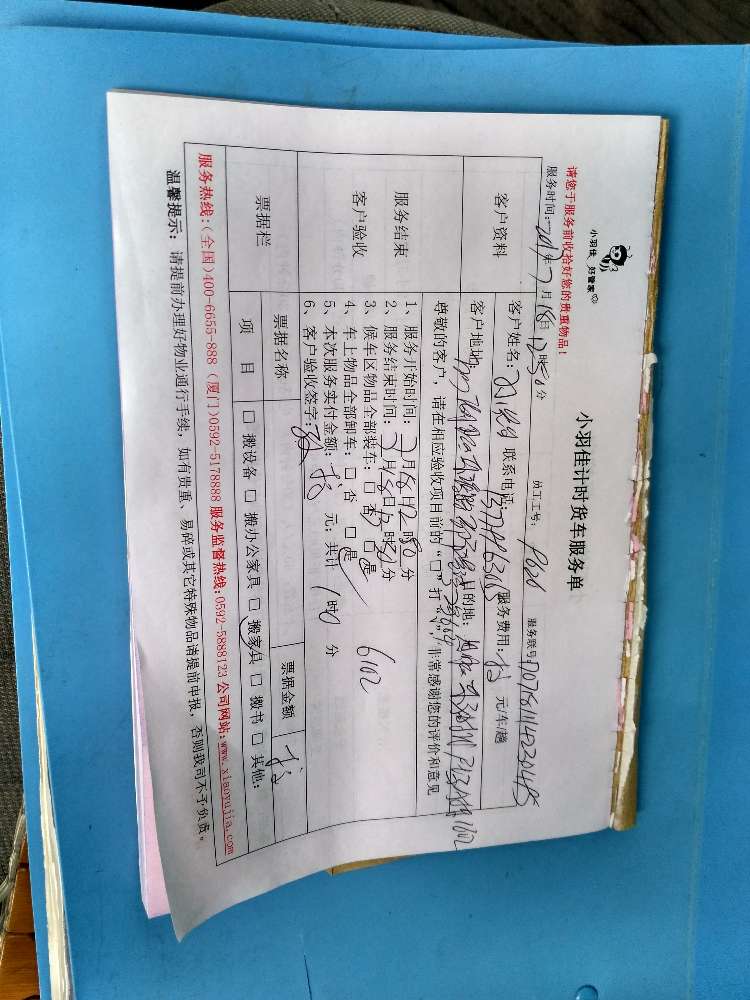 小羽佳 好管家
小羽佳计时货车服务单
请您于服务前收拾好您的贵重物品!
服务时间: 年7月18日12时50分 员工工号: P020 服务联号:
客户资料
客户姓名: 联系电话: 服务费用: 元/车/趟
客户地址: 目的地: 1602
尊敬的客户,请在相应验收项目前的“□”打“√”,非常感谢您的评价和意见
服务结束
客户验收
1、服务开始时间:7月18日12时50分
2、服务结束时间:7月18日 时50分
3、候车区物品全部装车:□ 否 □ 是
4、车上物品全部卸车:□ 否 □ 是
5、本次服务实付金额: 元;共计 1时0 分
6、客户验收签字:
6102
票据栏
票据名称 票据金额
项 目 □ 搬设备 □ 搬办公家具 □ 搬家具 □ 搬书 □ 其他:
服务热线:(全国)400-6655-888 (厦门)0592-5178888 服务监督热线:0592-5888123 公司网站:www.xiaoyujia.com
温馨提示:请提前办理好物业通行手续,如有贵重、易碎或其它特殊物品请提前申报,否则我司不予负责。